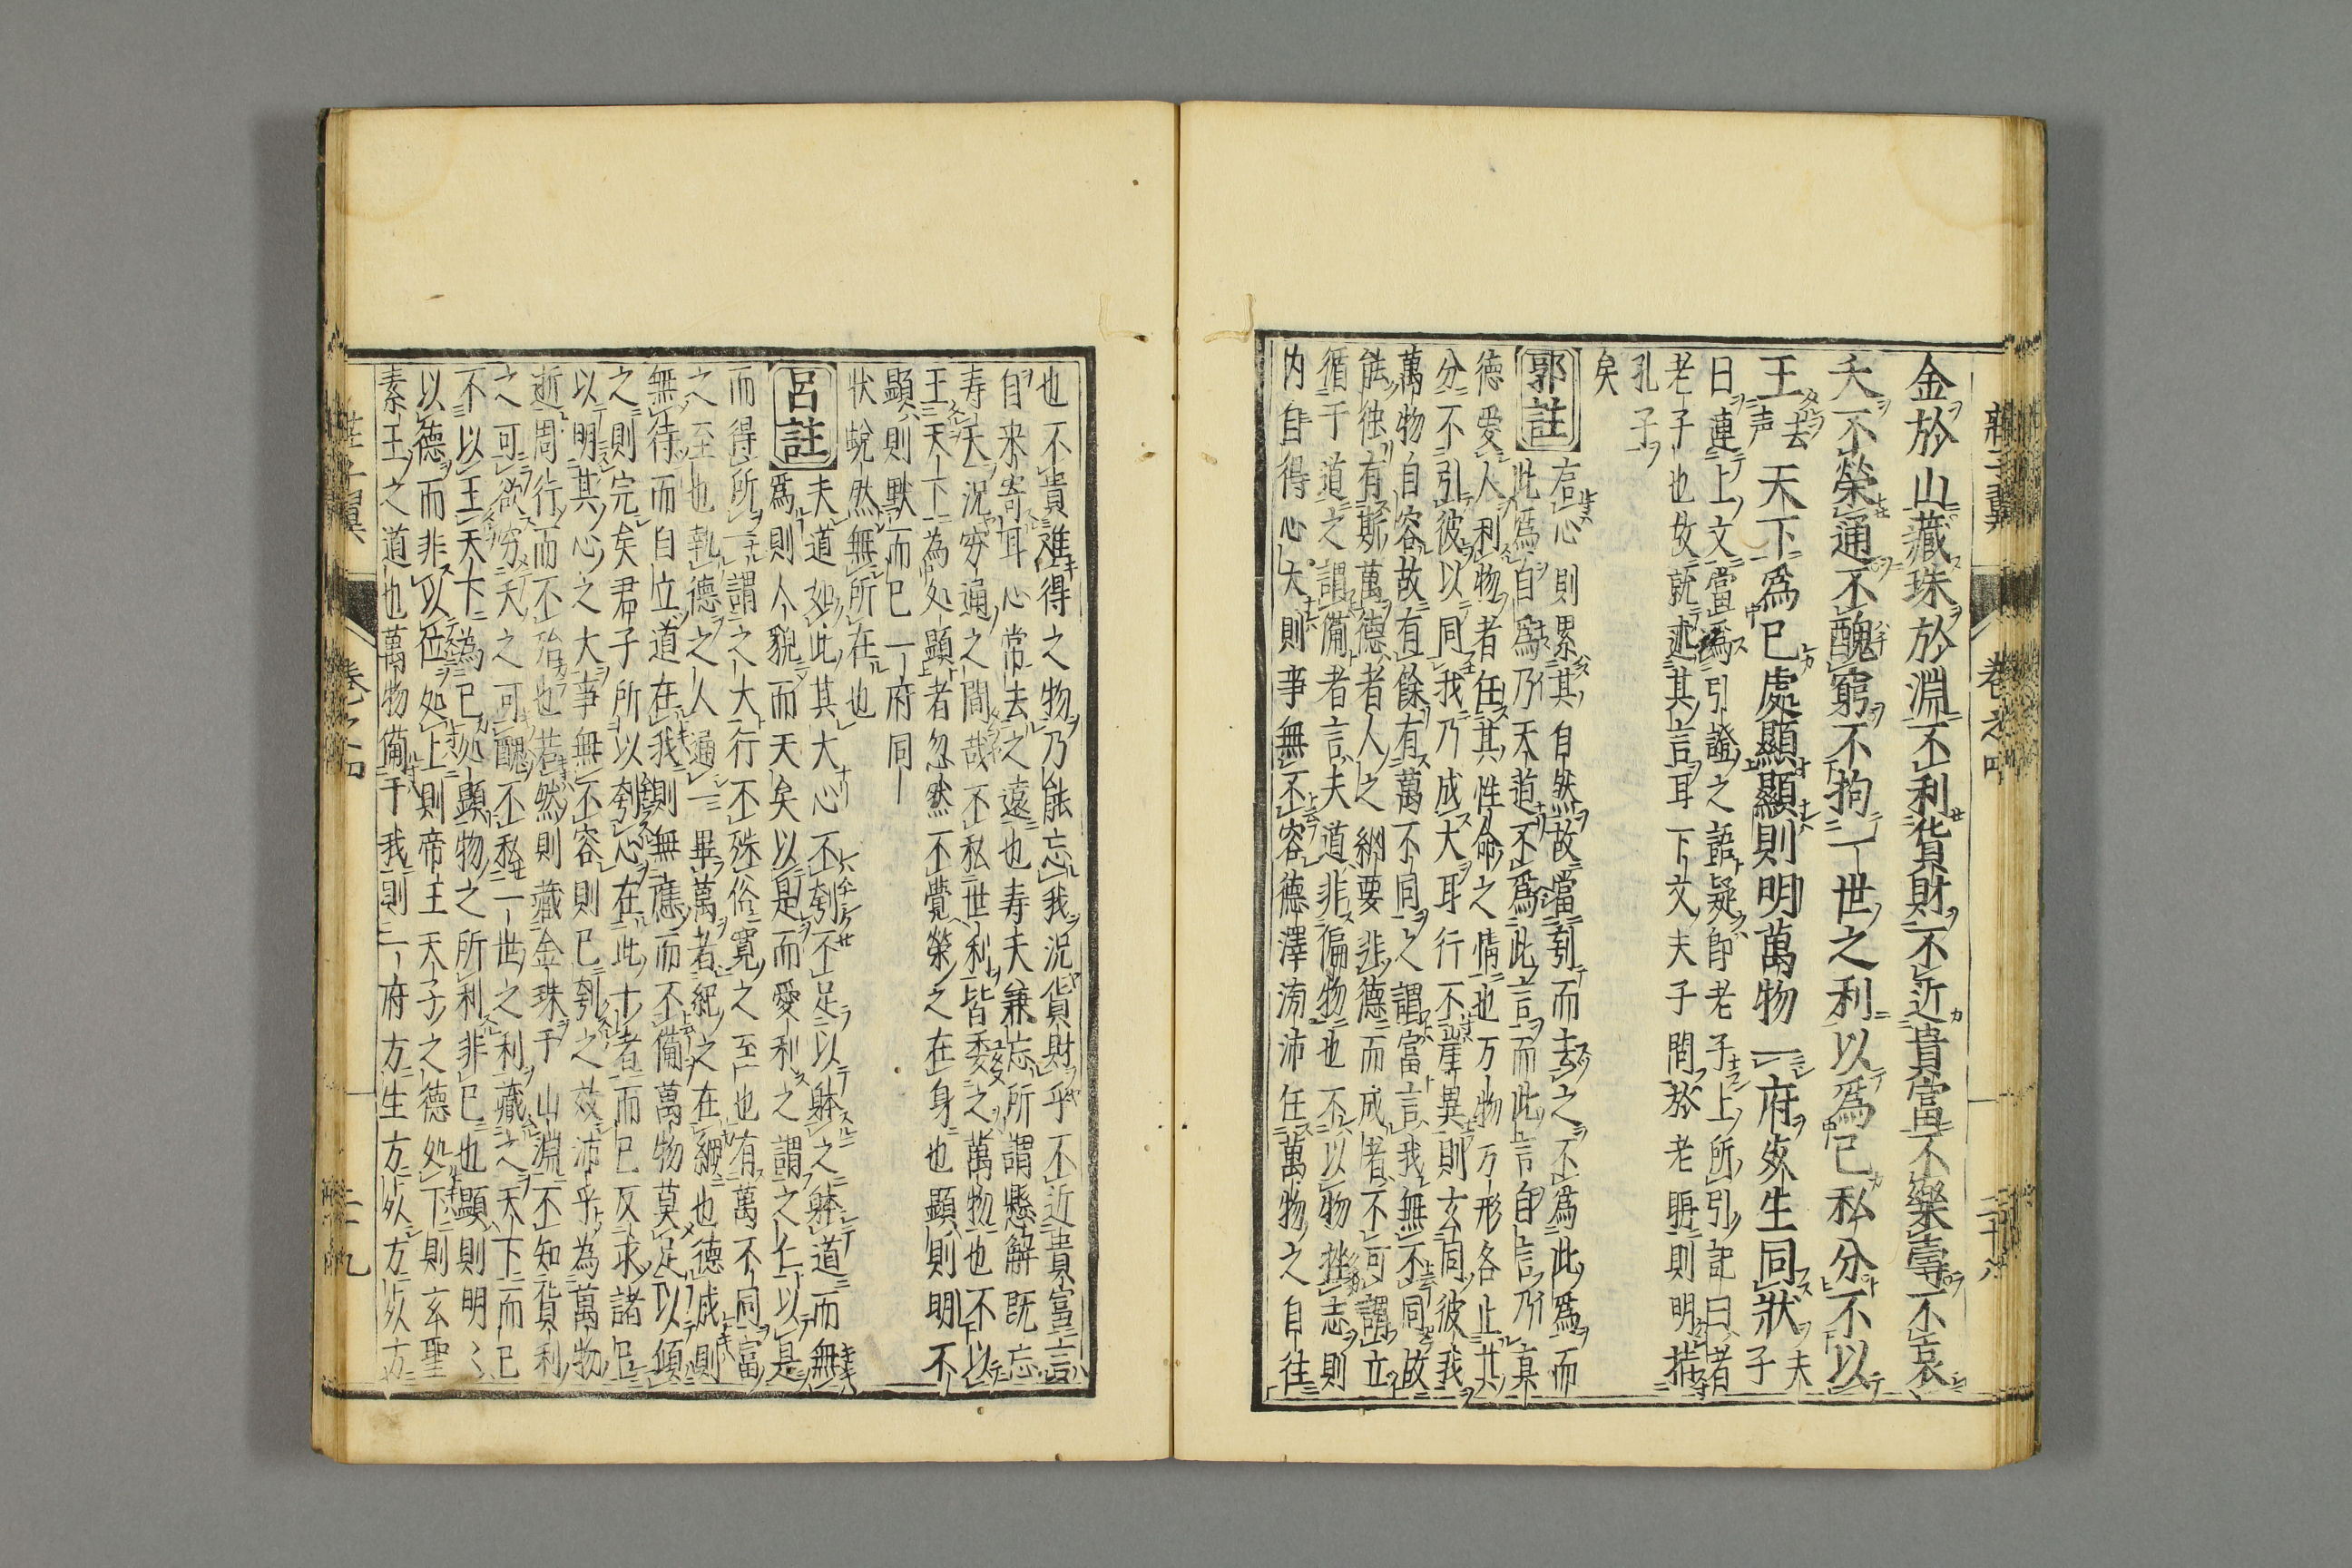 莊子翼 卷之四 二十八
金於山藏珠於淵不利貨財不近貴富不樂壽不哀
夭不榮通不醜窮不拘一世之利以爲己私分不以
王去声天下爲已處顯顯則明萬物一府死生同狀夫子
曰連上文當爲引證之語疑即老子上所引記曰者
老子也故就述其言耳下文夫子問於老聃則明指
孔子
矣
郭註
有心則累其自然故當刳而去之不爲此爲而
此爲自爲乃天道不爲此言而此言自言乃真
德愛人利物者任其性命之情也万物万形各止其
分不引彼以同我乃成大耳行不崖異則玄同彼我
萬物自容故有餘有萬不同之謂富言我無不同故
能独有斯萬德者人之綱要非德而成者不可謂立
循于道之謂備者言夫道非偏物也不以物挫志則
内自得心大則事無不容德澤滂沛任萬物之自往
也不貴難得之物乃能忘我況貨財乎不近貴富言
自来寄耳心常去之遠也寿夭兼忘所謂懸解既忘
寿夭況窮通之間哉不私世利皆委之萬物也不以
王天下為処顯者忽然不覺榮之在身也顯則明不
顯則默而已一府同
狀蛻然無所在也
呂註
夫道如此其大心不刳不足以躰之躰道而無
爲則人貌而天矣以是而愛利之謂之仁以是
而得所一謂之大行不殊俗寛之至也有萬不同富
之至也執德之人通一畢萬者紀之在綱也德成則
無待而自立道在我則無應而不備萬物莫足以傾
之則完矣君子所以刳心在此十者而已反求諸己
以明其心之大事無不容則已刳之效沛乎為萬物
逝周行而不殆也若然則藏金珠于山淵不知貨利
之可欲窮夭之可醜不私一世之利藏之天下而已
不以王天下為已処顯物之所利非已也顯則明〻
以德而非以位処上則帝王天子之德処下則玄聖
素王之道也萬物備于我則一府方生方死方死方
莊子翼 卷之四 二十九